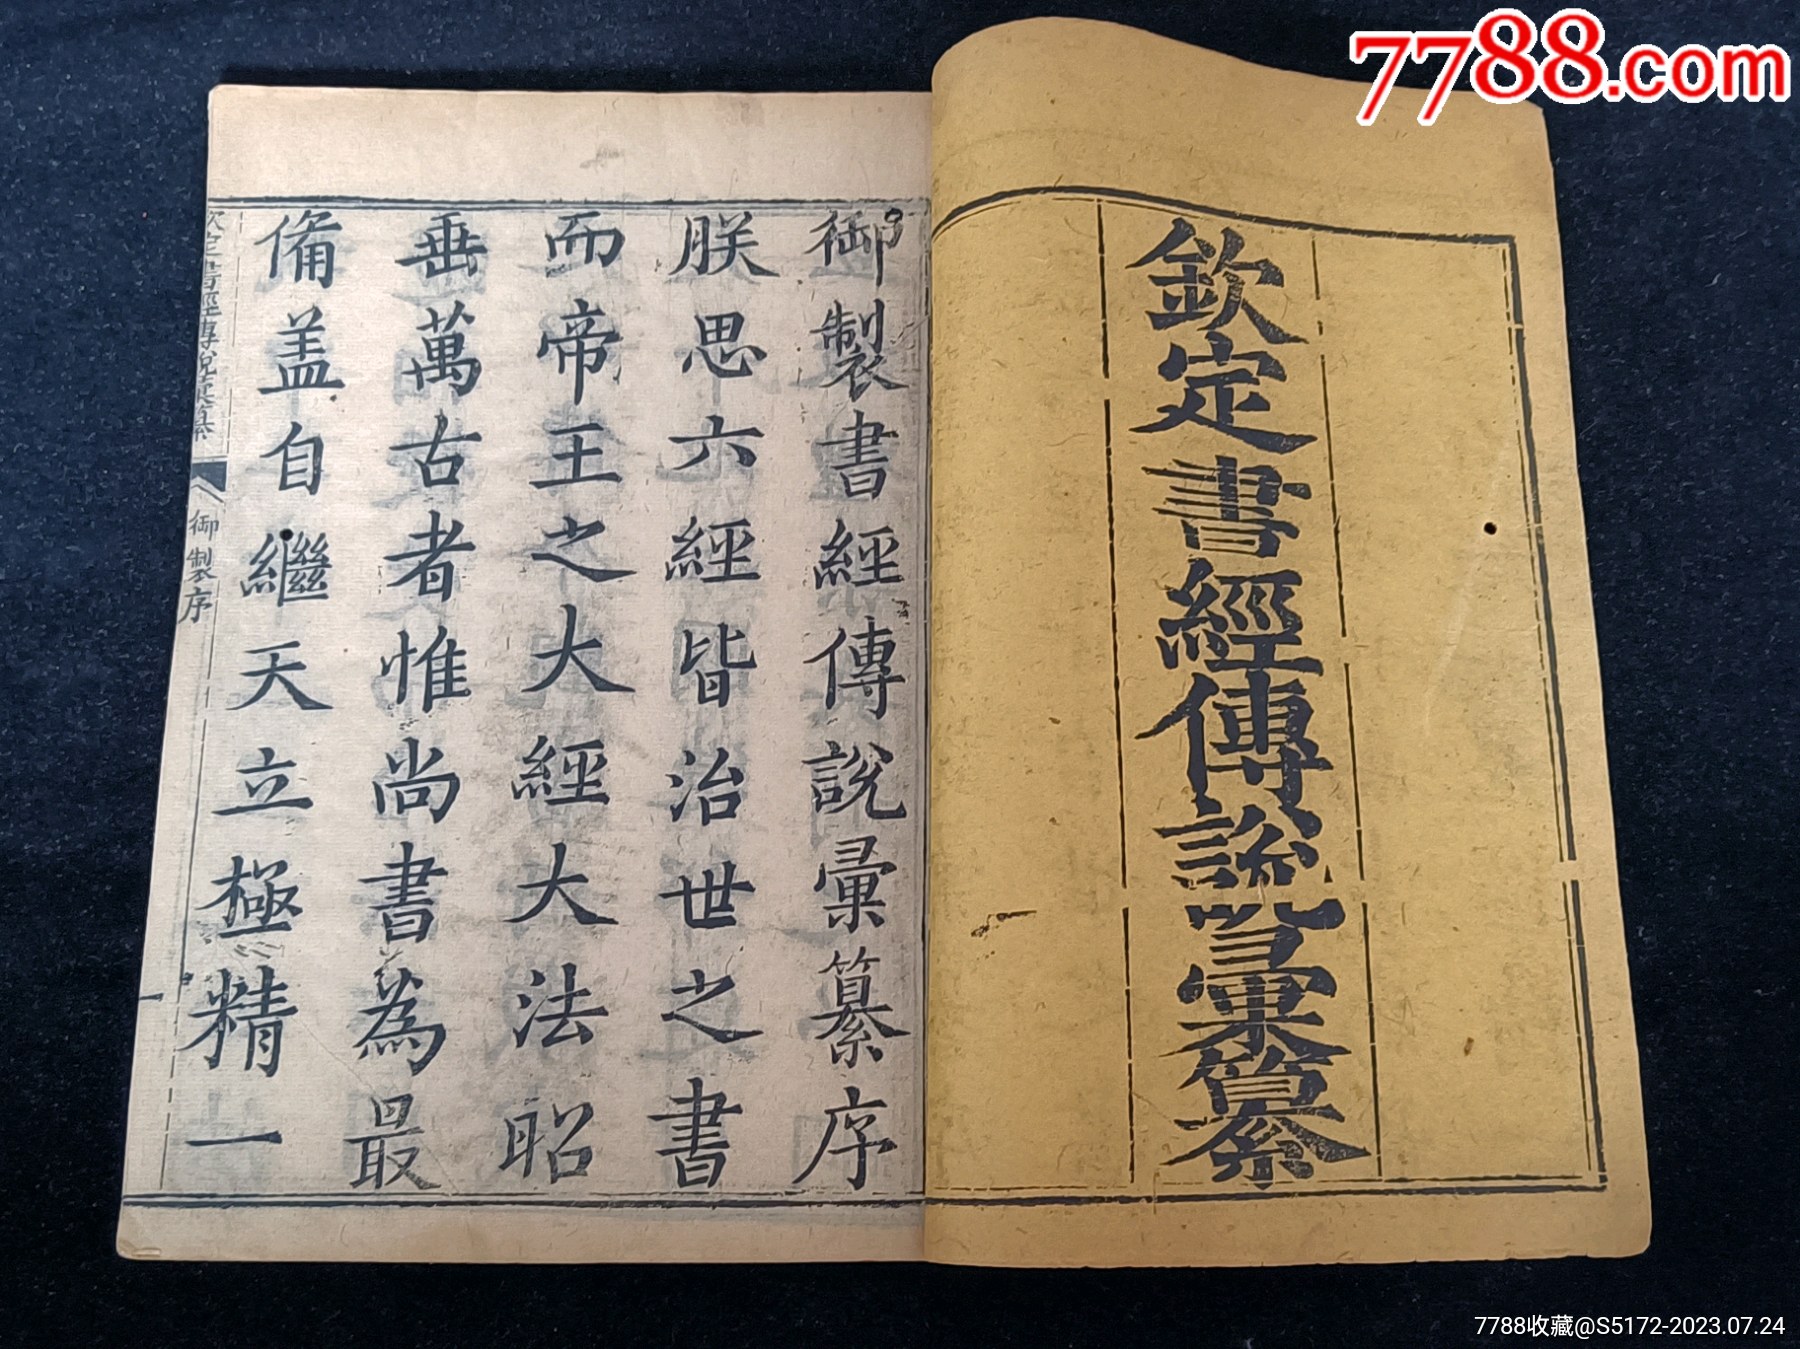 7788.com
欽定書經傳說彙纂
御製書經傳說彙纂序
朕思六經皆治世之書
而帝王之大經大法昭
垂萬古者惟尚書為最
備盖自繼天立極精一
欽定書經傳說彙纂
御製序
一
7788收藏@S5172-2023.07.24